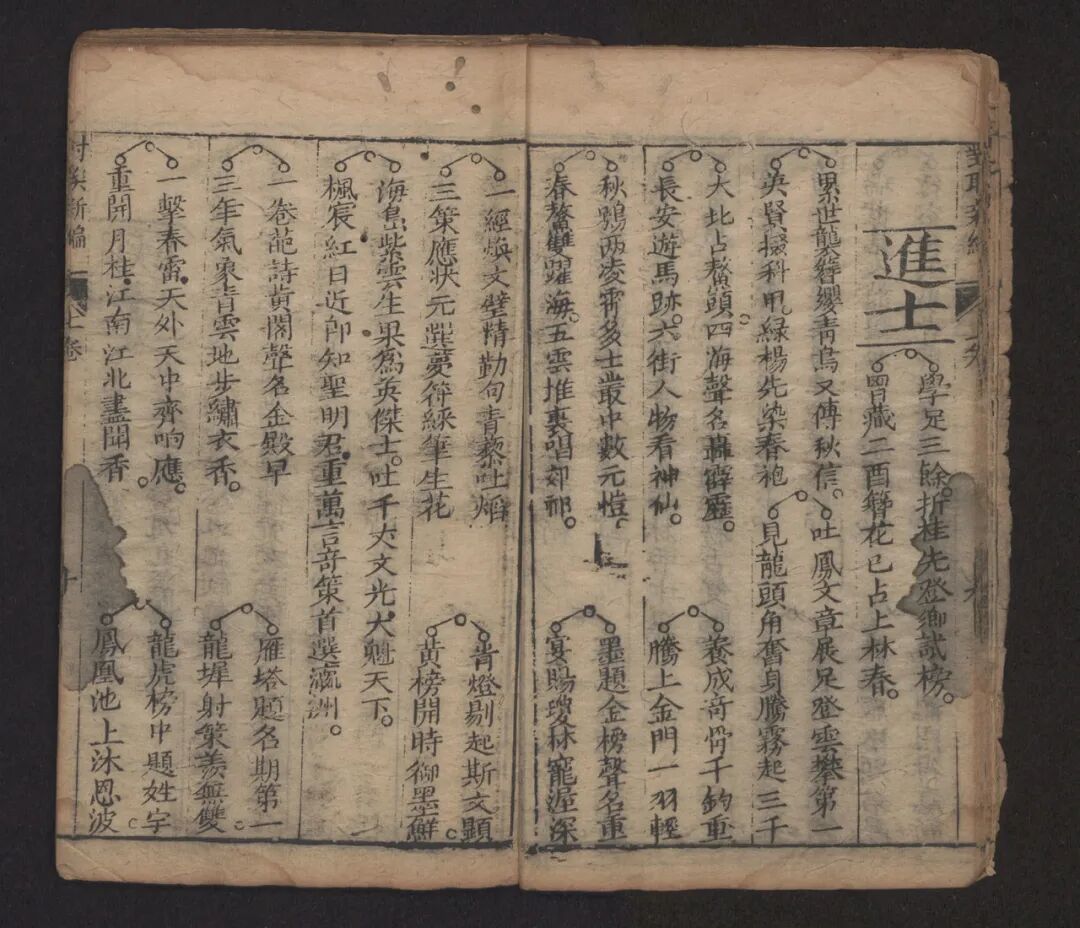 進士
學足三餘折桂先登鄉試榜。
曾藏二酉簪花已占上林春。
累世襲簪纓青鳥又傳秋信。
英賢掇科甲。綠楊先染春袍
吐鳳文章展足登雲攀第一
見龍頭角奮身騰霧起三千
大北占鰲頭四海聲名轟霹靂。
長安遊馬跡。六街人物看神仙。
養成奇骨千鈞重
騰上金門一羽輕
秋鶚两凌霄多士叢中數元愷。
春鰲雙躍海。五雲堆裏唱郊祁。
墨題金榜聲名重
宴賜瓊林寵渥深
一經煥文壁精勤句青藜吐焰
三策應狀元選夢符綵筆生花
青燈剔起斯文顯
黃榜開時御墨鮮
海島紫雲生果為英傑士。吐千丈文光大魁天下。
楓宸紅日近即知聖明君。重萬言竒策首選瀛洲。
一卷葩詩黃閣聲名金殿早
三年氣象青雲地步繡衣香。
雁塔題名期第一
龍墀射策羨無雙
一擊春雷天外天中齊响應。
重開月桂江南江北盡聞香。
龍虎榜中題姓字
鳳凰池上沐恩波
新編
上卷
十